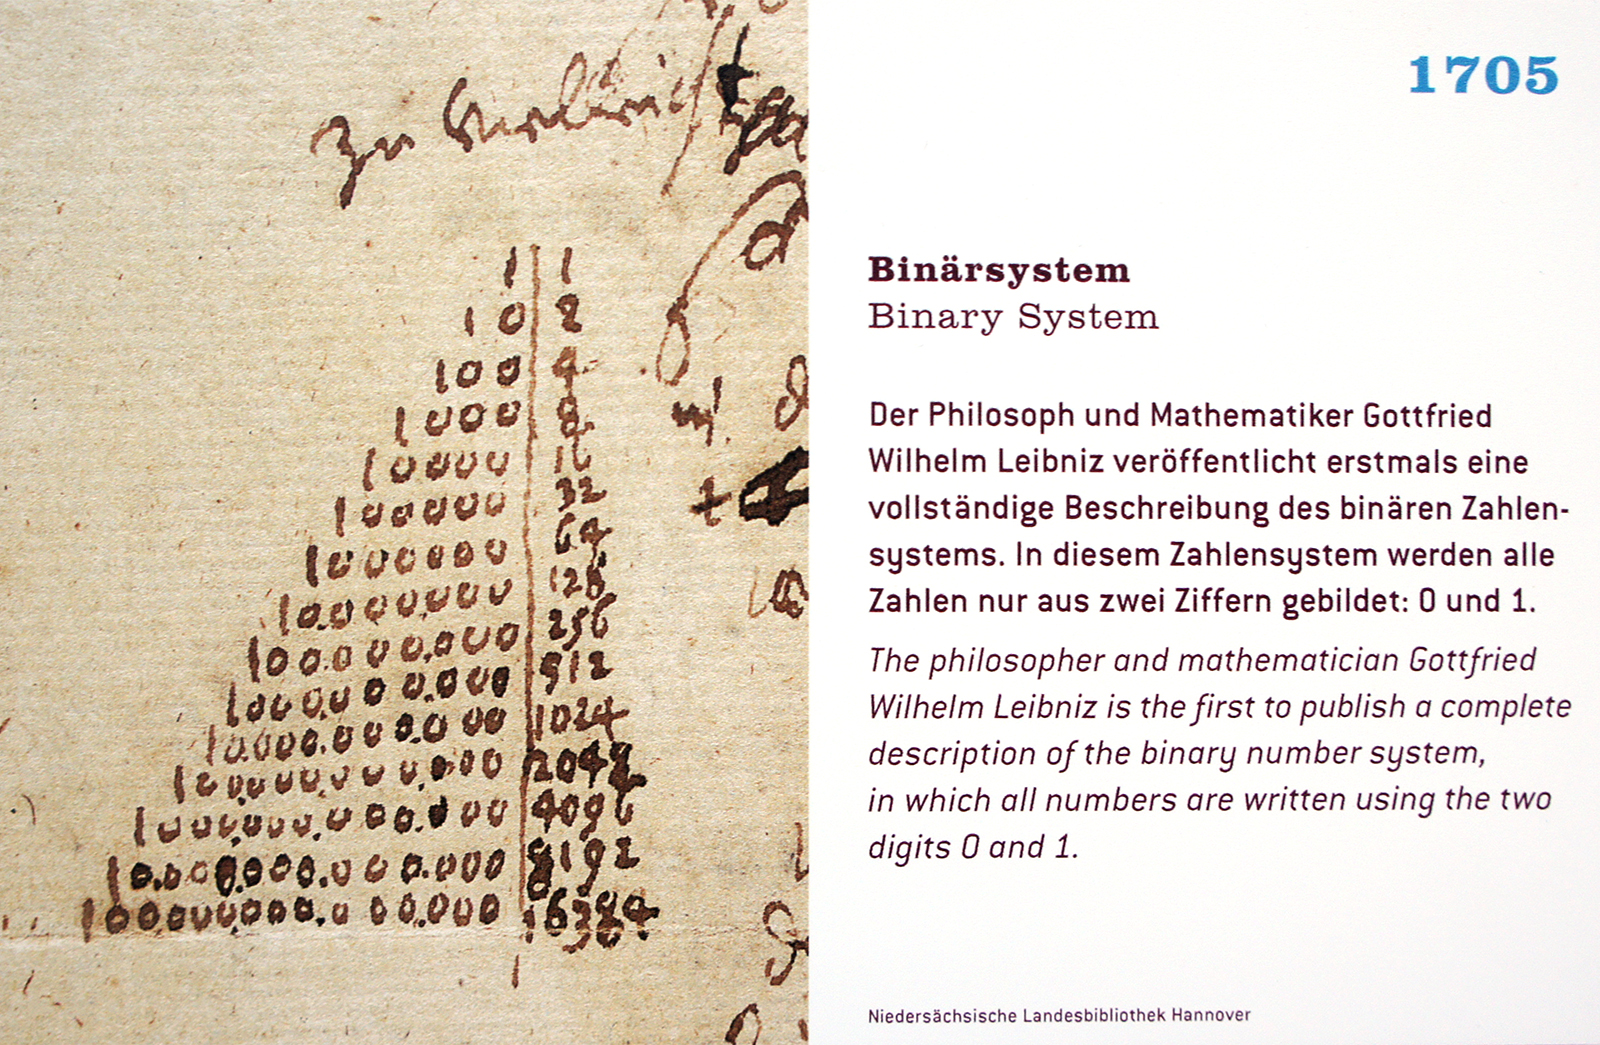 1 | 1
10 | 2
100 | 4
1000 | 8
10000 | 16
100000 | 32
1000000 | 64
10000000 | 128
100000000 | 256
1000000000 | 512
10000000000 | 1024
100000000000 | 2048
1000000000000 | 4096
10000000000000 | 8192
100000000000000 | 16384
1705
Binärsystem
Binary System
Der Philosoph und Mathematiker Gottfried
Wilhelm Leibniz veröffentlicht erstmals eine
vollständige Beschreibung des binären Zahlen-
systems. In diesem Zahlensystem werden alle
Zahlen nur aus zwei Ziffern gebildet: 0 und 1.
The philosopher and mathematician Gottfried
Wilhelm Leibniz is the first to publish a complete
description of the binary number system,
in which all numbers are written using the two
digits 0 and 1.
Niedersächsische Landesbibliothek Hannover